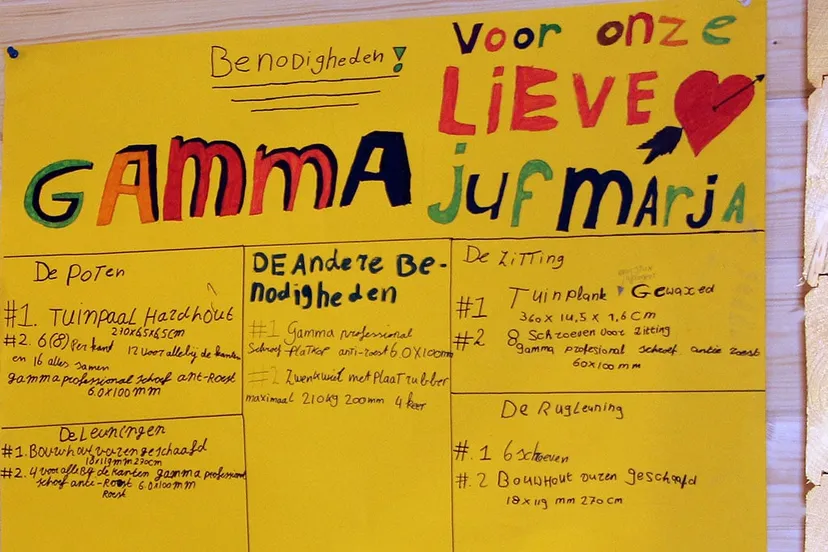 Benodigheden!
Voor onze
LIEVE
GAMMA
juf MArjA
De Poten
#1. Tuinpaal Hardhout
270x65x65cm
#2. 6(8) Per kant 12 voor allebij de kanten
en 16 alles samen
gamma professional schoef anti-Roest
6.0x100mm
De Leuningen
#1. Bouwhout vuren geschaafd
18x119mm 270cm
#2. 4 voor alle Bij de kanten gamma professional
schoef anti-Roest 6.0x100mm
Roest
DE Andere Be-
nodigheden
#1 Gamma professional
Schroef Platkop anti-roest 6.0x100mm
#2 Zwenkwiel met Plaat rubber
maximaal 210kg 200mm 4 keer
De Zitting
#1 Tuinplank Gewaxed
360 x 14,5 x 1,6 cm
#2 8 Schroeven voor zitting
gamma profesional schoef antie roest
60x100mm
De Rugleuning
#.1 6 schoeven
#.2 Bouwhout vuren geschaafd
18x119 mm 270 cm